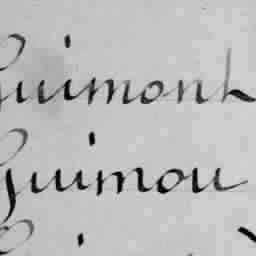 Guimont
Guimou